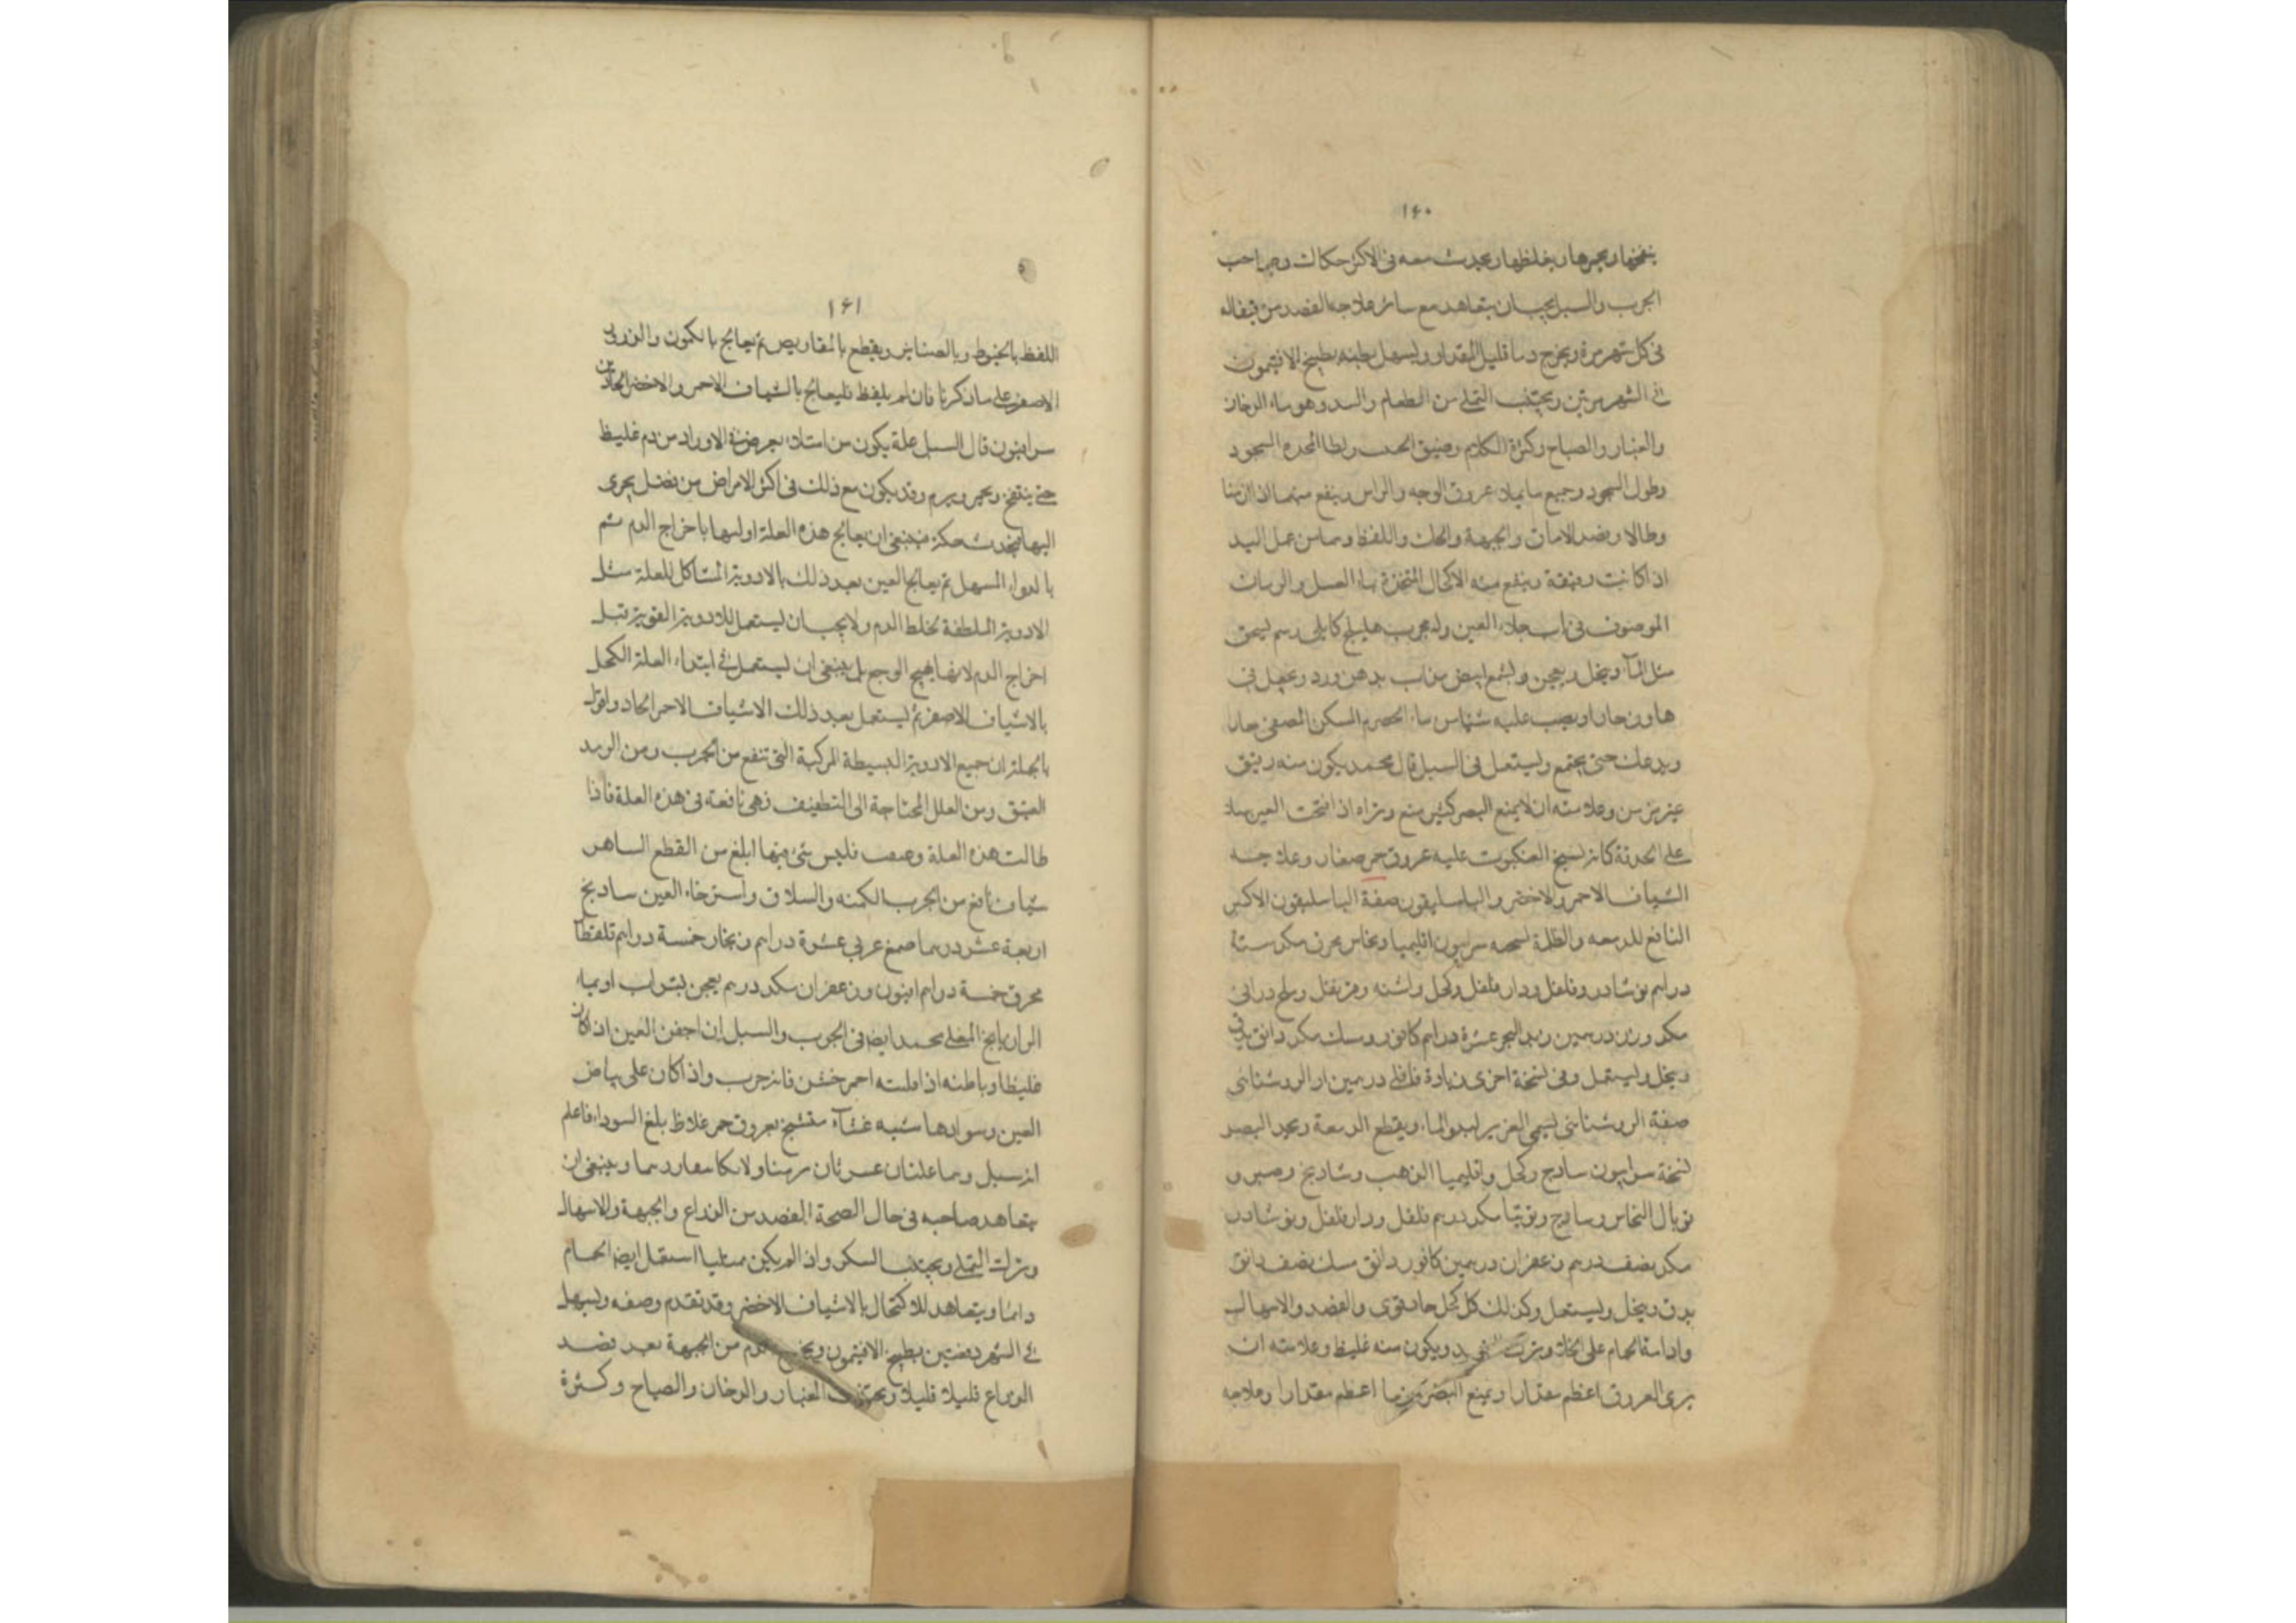 ١٦٠
ينفخها ويحمرها ويغلظها ويحدث معه فى الاكثر حكاك وصاحب
الجرب والسبل يجب ان يتعاهد مع سائر علاجه الفصد من قيفاله
فى كل شهر مرة ويخرج دما قليل المقدار ويسهل بطنه بطبيخ الافتيمون
فى الشهر مرتين ويجتنب التملى من الطعام والدخان
والغبار والصياح وكثرة الكلام وضيق الجيب
وطول السجود وجميع ما يملا عروق الوجه والراس وينفع منهما اذا ازمنا
وطالا وفصد الاماق والجبهة والحك واللقط وهما من عمل اليد
اذا كانت رقيقة وينفع منه الاكحال المتخذة بماء العسل والرمان
الموصوف فى باب جلاء العين وله مجرب هليلج كابلى درهم يسحق
مثل الماء وينخل ويعجن وشمع ابيض مذاب بدهن ورد ويجعل فى
هاون حار ويصب عليه شيئا من ماء الحصرم المصفى حارا
ويدعك حتى يجتمع ويستعمل فى السبل قال محمد يكون منه رقيق
غير مزمن وعلامته ان لا يمنع البصر كثير منع وتراه اذا فتحت العين
على الحدقة كانه نسيج العنكبوت عليه عروق حمر صغار وعلاجه
الشياف الاحمر والاخضر والباسليقون صفة الباسليقون الاكبر
النافع للدمعه والظلمة نسخه سرابيون اقليميا ونحاس محرق مكد ستة
دراهم نوشادر وفلفل ودار فلفل وكحل واشنه وقرنفل وملح درانى
مكد وزن درهمين وزبد البحر عشرة دراهم كافور ومسك مكد دانق يدق
وينخل ويستعمل وفى نسخة اخرى زيادة درهمين الروشنائى
صفة الروشنائى يسمى العزيز لبدو الماء ويقطع الدمعة ويحد البصر
نسخة سرابيون ساذج وكحل واقليميا الذهب وشاديج وصبر و
توبال النحاس وساذج وتوتيا مكد درهم فلفل ودار فلفل ونوشادر
مكد نصف درهم زعفران درهمين كافور دانق مسك نصف دانق
يدق وينخل ويستعمل وكذلك كل كحل حاد قوى والفصد والاسهال
وادامة الحمام على الخلا ويكون منه غليظ وعلامته ان
يرى العروق اعظم مقدارا ويمنع البصر اعظم مقدارا وعلاجه
١٦١
اللقط بالخيوط وبالصنانير ويقطع بالمقاريض ثم يعالج بالكمون والذرور
الاصفر على ما ذكرنا فان لم يلقط فليعالج بالشياف الاحمر والاخضر الحادين
سرابيون قال السبل علة يكون من امتلاء يعرض فى الاوراد من دم غليظ
حتى ينتفخ ويحمر ويرم وقد يكون مع ذلك فى اكثر الامراض من فضل يجرى
اليها فيحدث حكة فينبغى ان يعالج هذه العلة اوليها باخراج الدم ثم
بالدواء المسهل ثم يعالج العين بعد ذلك بالادوية المشاكل للعلة مثل
الادوية الملطفة لخلط الدم ولا يجب ان يستعمل للادوية القوية قبل
اخراج الدم لانها يهيج الوجع بل ينبغى ان يستعمل فى ابتداء العلة الكحل
بالاشياف الاصفر ثم يستعمل بعد ذلك الاشياف الاحمر الحاد واقول
بالجملة ان جميع الادوية البسيطة المركبة التى تنفع من الجرب ومن الرمد
العتيق ومن العلل المحتاجة الى التلطيف فهى نافعة فى هذه العلة فاذا
طالت هذه العلة وصعب فليس شى منها ابلغ من القطع الساهر
شياف نافع من الجرب الكمنه والسلاق واسترخاء العين ساديج
اربعة عشر درهما صمغ عربى عشرة دراهم زنجار خمسة دراهم قلقطار
محرق خمسة دراهم افيون وزعفران مكد درهم يعجن بشراب او بماء
الرازيانج المغلى محمد ايضا فى الجرب والسبل ان اجفن العين اذا كان
غليظا وباطنه اذا قلبته احمر خشن فانه جرب واذا كان على بياض
العين وسوادها شبه غشاء منتسج بعروق حمر غلاظ بلغ السواد فاعلم
انه سبل وهما علتان عسرتان مزمنتا ولا يكا
يتعاهد صاحبه فى حال الصحة الفصد من الذراع والجبهة والاسهال
وترك التملى ويجتنب السكر واذا لم يكن ممتليا استعمل ايضا الحمام
دائما ويتعاهد للاكتحال بالاشياف الاخضر وقد تقدم وصفه ويسهل
فى الشهر دفعتين بطبيخ الافتيمون ويخرج الدم من الجبهة بعد فصد
الذراع قليلا قليلا ويجتنب الغبار والدخان والصياح وكثرة